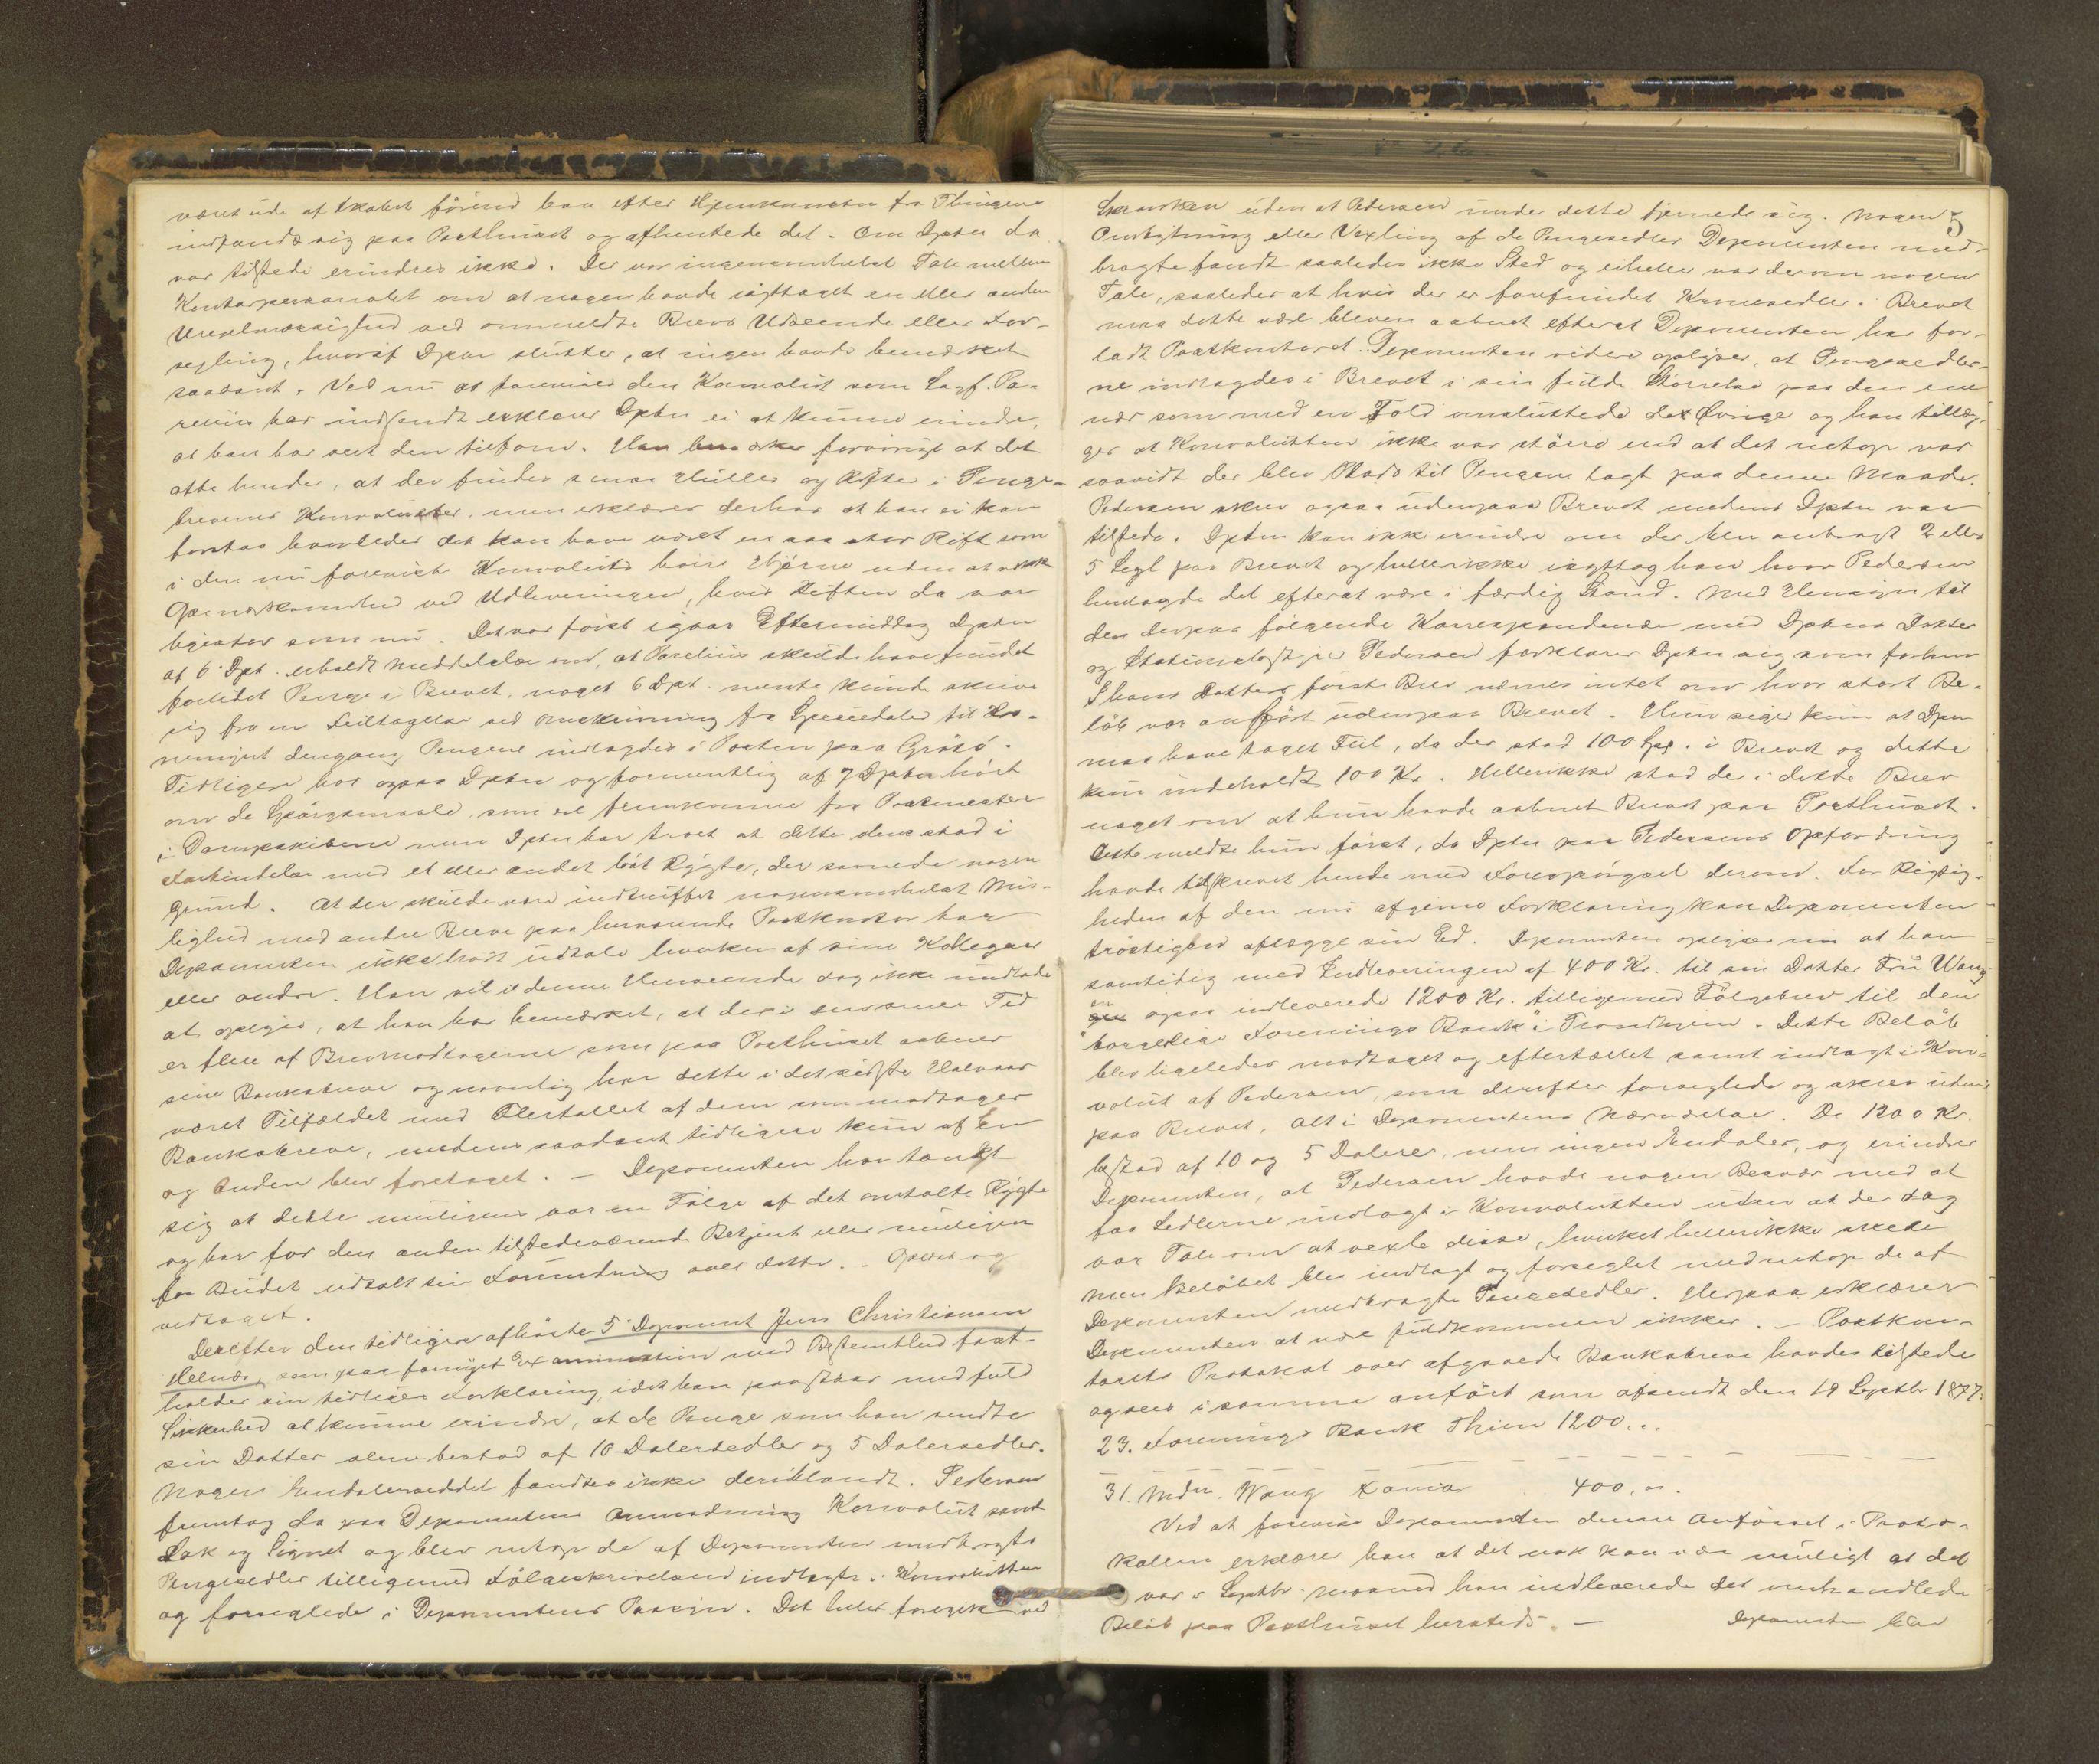 været ude af Skabet förend han efter Hjemkomsten fra Thingene
indfandt sig paa Posthuset og afhentede det. Om Dptn da
var tilstede erindres ikke. Der var ingensomhelst Tale mellem
Kontorpersonalet om at nogen havde iagttaget en eller anden
Uregelmæssighed ved ommeldte Brevs Udseende eller For-
segling, hvoraf Dptn slutter, at ingen havde bemærket
saadant. Ved nu at forevises den Konvolut som Sagf. Pa-
relius har indsendt erklærer Dptn ei at kunne erindre,
at han har seet den tilforn. Han bemærker forövrigt at det
ofte hender, at der findes smaa Huller og Rifter i Penge-
brevenes Konvolutter, men erklærer derhos at han ei kan
forstaa hvorledes det kan have været en saa stor Rift som
i den nu foreviste Konvoluts höire Hjörne uden at vække
Opmærksomhed ved Udleveringen, hvis Riften da var
ligesaa stor som nu. Det var först igaar Eftermiddag Dptn
af 6 Dpt. erholdt Meddelelse om, at Parelius skulde have fundet
forlidet Penge i Brevet, noget 6 Dpt. mente kunde skrive
sig fra en Feiltagelse ved Omskrivning fra Speciedaler til Kro-
nemynt dengang Pengene indlagdes i Posten paa Grötö.
Tidligere har ogsaa Dptn og formentlig af 7 Dptn hört
om de Spörgsmaale, som ere fremkomne fra Postmestere
i Dampskibene men Dptn har troet at dette dere stod i
Forbindelse med et eller andet löst Rygte, der savnede nogen
Grund. At der skulde være indtruffet nogensomhelst Mis-
lighed med andre Breve paa herværende Postkontor har
Deponenten ikke hört udtale hverken af sine Kolleger
eller andre. Han vil i denne Henseende dog ikke undlade
at oplyse, at han har bemærket, at der i den senere Tid
er flere af Brevmodtagerne som paa Posthuset aabner
sine Bankobreve og navnlig har dette i det sidste Halvaar
været Tilfældet med Flertallet af dem som modtager
Bankobreve, medens saadant tidligere kun af En
og Anden blev foretaget. – Deponenten har tænkt
sig at dette muligens var en Fölge af det omtalte Rygte
og har for den anden tilstedeværende Betjent eller muligen
for Budet udtalt sin Formodning over dette. – Oplæst og
vedtaget.
Derefter den tidligere afhörte 5 Deponent Jens Christiansen
Helnæs, som paa fornyet Examination med Bestemthed fast-
holder sin tidligere Forklaring, idet han paastaar med fuld
Sikkerhed at kunne erindre, at de Penge som han sendte
sin Datter alene bestod af 10 Dalersedler og 5 Dalersedler.
Nogen Endalerseddel fandtes ikke deriblandt. Pedersen
fremtog da paa Deponentens Anmodning Konvolut samt
Lak og Signet og blev netop de af Deponenten medbragte
Pengesedler tilligemed Fölgeskrivelsen indlagte i Konvolutten
og forseglede i Deponentens Paasyn. Det heller foregik ved
5
Skranken uden at Pedersen under dette fjernede sig. Nogen
Ombytning eller Vexling af de Pengesedler Deponenten med-
bragte fandt saaledes ikke Sted og eiheller var derom nogen
Tale, saaledes at hvis der er forefundet Kronesedler i Brevet
maa dette være bleven aabnet efterat Deponenten har for-
ladt Postkontoret. Deponenten videre oplyser, at Pengesedler-
ne indlagdes i Brevet i sin fulde Störrelse paa den ene
nær som med en Fold omsluttede det Övrige og han tillæg-
ger at Konvolutten ikke var större end at det netop var
saavidt der blev Plads til Pengene lagt paa denne Maade.
Pedersen skrev ogsaa udenpaa Brevet medens Dptn var
tilstede. Dptn kan ikke erindre om der blev anbragt 2 eller
5 Segl paa Brevet og hellerikke iagttog han hvor Pedersen
henlagde det efterat være i færdig Stand. Med Hensyn til
den derpaa fölgende Korrespondense med Dptns Datter
og Stationsbestyrer Pedersen forklarer Dptn sig som forhen
I hans Datters förste Brev nævnes intet om hvor stort Be-
löb var anfört udenpaa Brevet. Hun siger kun at Dptn
maa have taget Feil, da der stod 100 Spd. i Brevet og dette
kun indeholdt 100 Kr. Hellerikke stod der i dette Brev
noget om at hun havde aabnet Brevet paa Posthuset.
Dette meldte hun först, da Dptn paa Pedersens Opfordring
havde tilskrevet hende med Forespörgsel derom. For Rigtig-
heden af den nu afgivne Forklaring kan Deponenten
tröstigen aflægge sin Ed. Deponenten oplyser nu at han
samtidig med Indleveringen af 400 Kr. til sin Datter Fru Wang
en ogsaa indleverede 1200 Kr. tilligemed Fölgebrev til den
"borgerlige Forenings Bank" i Trondhjem. Dette Belöb
blev ligeledes modtaget og eftertællet samt indlagt i Kon-
volut af Pedersen, som derefter forseglede og skrev uden-
paa Brevet, alt i Deponentens Nærværelse. De 1200 Kr.
bestod af 10 og 5 Dalere, men ingen Endaler, og erindrer
Deponenten, at Pedersen havde nogen Besvær med at
faa Sedlerne indlagt i Konvolutten uden at der dog
var Tale om at vexle disse, hvilket hellerikke skede
men Belöbet blev indlagt og forseglet med netop de af
Deponenten medbragte Pengesedler. Herpaa erklærer
Deponenten at være fuldkommen sikker. – Postkon-
torets Protokol over afgaaede Bankobreve havdes tilstede
og sees i samme anfört som afsendt den 19 Septbr 1877:
23. Forenings Bank Thjem 1200. „
31. Mdm. Wang 400. „
Ved at forevise Deponenten denne Anförsel i Proto-
kollen erklærer han at det nok kan være muligt at det
var i Septbr. Maaned han indleverede det omhandlede
Belöb paa Posthuset hersteds. – Deponenten blev